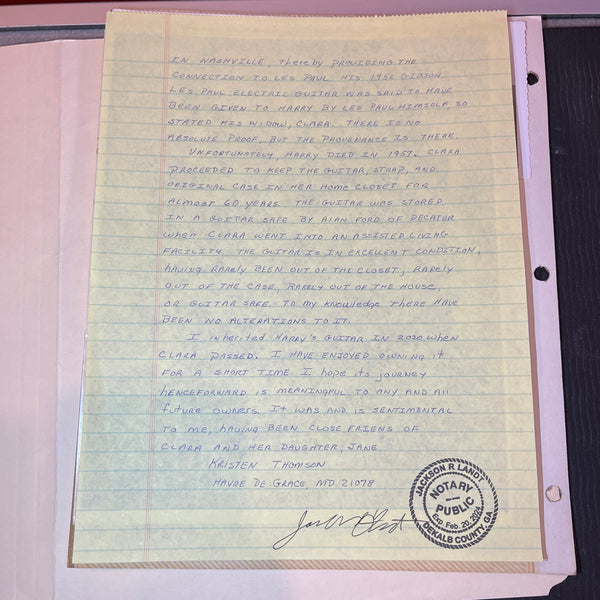 IN NASHVILLE, thereby PROVIDING THE
CONNECTION TO LES PAUL. HIS 1952 GIBSON
LES PAUL ELECTRIC GUITAR WAS SAID TO HAVE
BEEN GIVEN TO HARRY BY LES PAUL HIMSELF, SO
STATED HIS WIDOW, CLARA. THERE IS NO
ABSOLUTE PROOF, BUT THE PROVENANCE IS THERE.
UNFORTUNATELY, HARRY DIED IN 1957. CLARA
PROCEEDED TO KEEP THE GUITAR, STRAP, AND
ORIGINAL CASE IN HER HOME CLOSET FOR
ALMOST 60 YEARS. THE GUITAR WAS STORED
IN A GUITAR SAFE BY ALAN FORD OF DECATUR
WHEN CLARA WENT INTO AN ASSISTED LIVING
FACILITY. THE GUITAR IS IN EXCELLENT CONDITION,
HAVING RARELY BEEN OUT OF THE CLOSET, RARELY
OUT OF THE CASE, RARELY OUT OF THE HOUSE,
OR GUITAR SAFE. TO MY KNOWLEDGE THERE HAVE
BEEN NO ALTERATIONS TO IT.
I INHERITED HARRY'S GUITAR IN 2020 WHEN
CLARA PASSED. I HAVE ENJOYED OWNING IT
FOR A SHORT TIME. I HOPE ITS JOURNEY
HENCEFORWARD IS MEANINGFUL TO ANY AND ALL
FUTURE OWNERS. IT WAS AND IS SENTIMENTAL
TO ME, HAVING BEEN CLOSE FRIENS OF
CLARA AND HER DAUGHTER, JANE.
KRISTEN THOMSON
HAVRE DE GRACE, MD. 21078
JACKSON R LANDY
NOTARY
PUBLIC
Exp. Feb. 20, 2024
DEKALB COUNTY, GA